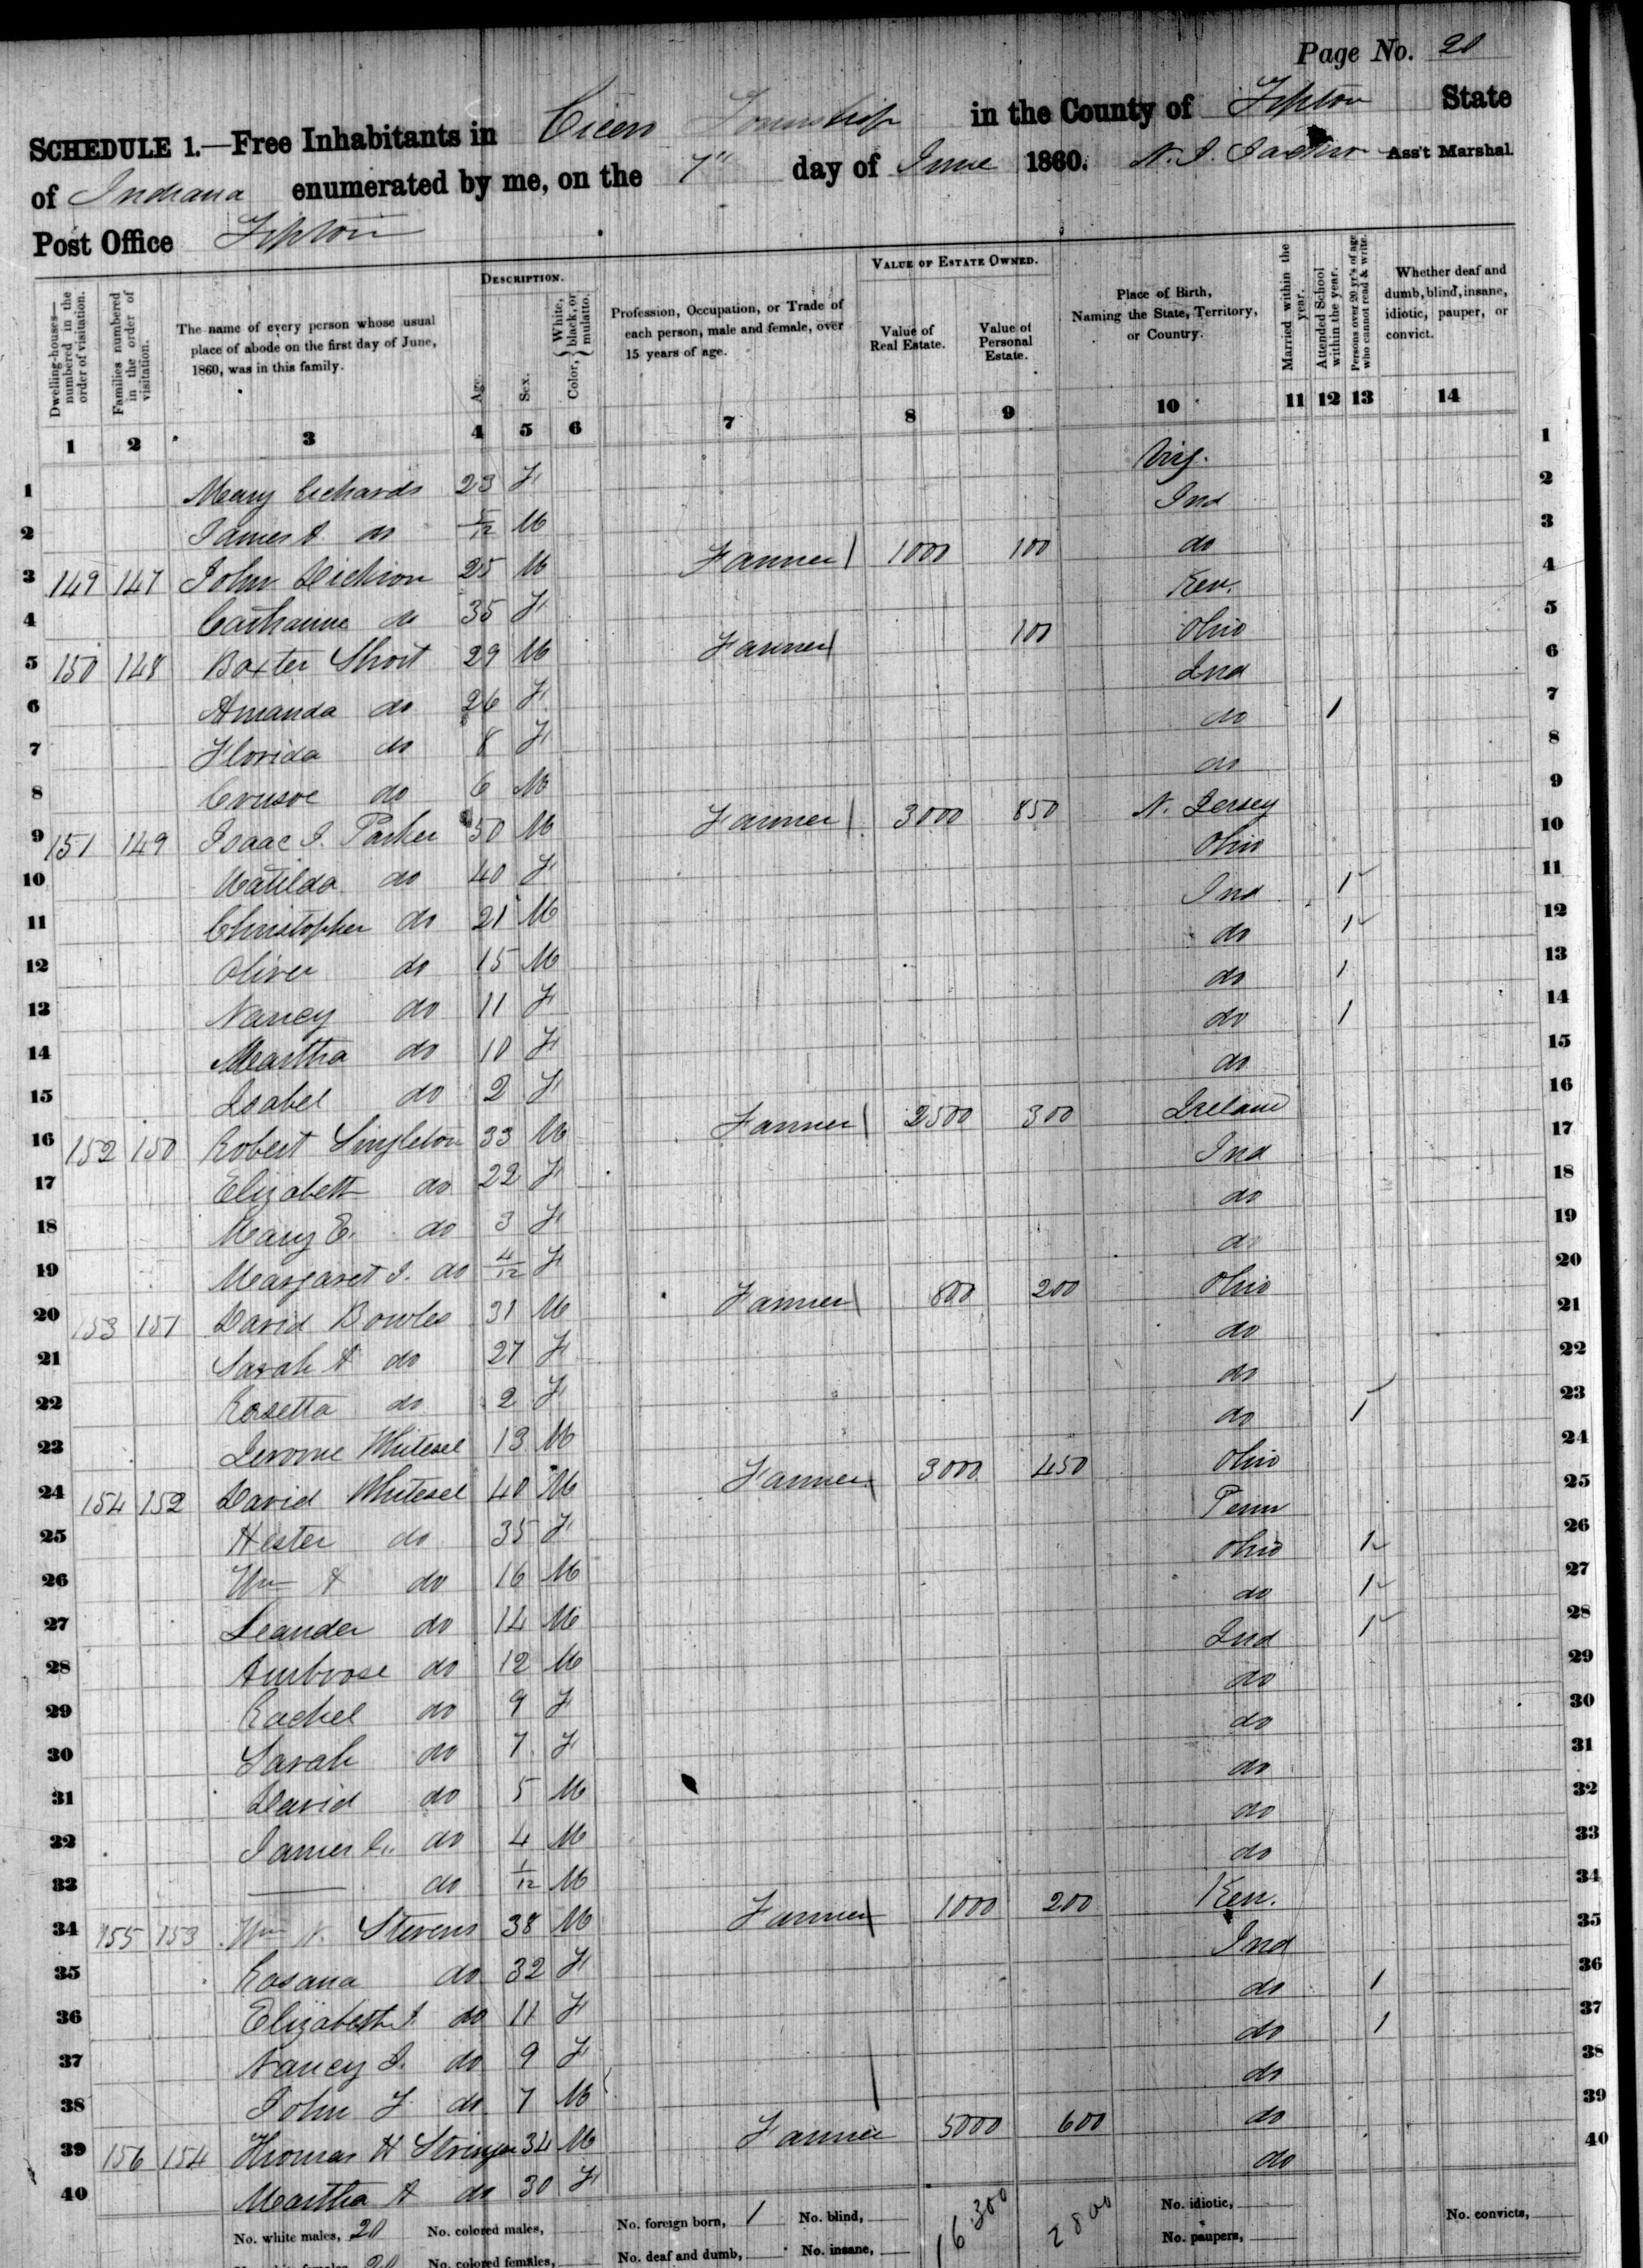 Page No. 20
SCHEDULE 1.—Free Inhabitants in Cicero Township in the County of Tipton State
of Indiana enumerated by me, on the 7" day of June 1860. N. J. Ass't Marshal.
Post Office Tipton
DESCRIPTION.
VALUE OF ESTATE OWNED.
Dwelling-houses—numbered in the order of visitation.
Families numbered in the order of visitation.
The name of every person whose usual place of abode on the first day of June, 1860, was in this family.
Age.
Sex.
Color, { White, black, or mulatto.
Profession, Occupation, or Trade of each person, male and female, over 15 years of age.
Value of Real Estate.
Value of Personal Estate.
Place of Birth, Naming the State, Territory, or Country.
Married within the year.
Attended School within the year.
Persons over 20 yr's of age who cannot read & write.
Whether deaf and dumb, blind, insane, idiotic, pauper, or convict.
1 2 3 4 5 6 7 8 9 10 11 12 13 14
1 Mary 23 F Virg. 1
2 James do 5/12 M Ind 2
3 149 147 John 25 M Farmer 1000 100 do 3
4 Catharine do 35 F Ken. 4
5 150 148 Baxter Short 29 M Farmer 100 Ohio 5
6 Amanda do 26 F Ind 6
7 Florida do 8 F do 1 7
8 Crusoe do 6 M do 8
9 151 149 Isaac J. Parker 50 M Farmer 3000 850 N. Jersey 9
10 Matilda do 40 F Ohio 10
11 Christopher do 21 M Ind 1 11
12 Oliver do 15 M do 1 12
13 Nancy do 11 F do 1 13
14 Martha do 10 F do 1 14
15 Isabel do 2 F do 15
16 152 150 Robert Singleton 33 M Farmer 2500 300 Ireland 16
17 Elizabeth do 22 F Ind 17
18 Mary E. do 3 F do 18
19 Margaret J. do 4/12 F do 19
20 153 151 David Bowles 31 M Farmer 800 200 Ohio 20
21 Sarah A do 27 F do 21
22 Rosetta do 2 F do 22
23 Jerome Whitesel 13 M do 1 23
24 154 152 David Whitesel 40 M Farmer 3000 450 Ohio 24
25 Hester do 35 F Penn 25
26 Wm A do 16 M Ohio 1 26
27 Leander do 14 M do 1 27
28 Ambrose do 12 M Ind 1 28
29 Rachel do 9 F do 29
30 Sarah do 7 F do 30
31 David do 5 M do 31
32 James C. do 4 M do 32
33 do 1/12 M do 33
34 155 153 Wm Stevens 38 M Farmer 1000 200 Ken. 34
35 Rosana do 32 F Ind 35
36 Elizabeth J. do 11 F do 1 36
37 Nancy J. do 9 F do 1 37
38 John F do 7 M do 38
39 156 154 Thomas H Stringer 34 M Farmer 5000 600 do 39
40 Martha A do 30 F do 40
No. white males, 20 No. colored males, No. foreign born, 1 No. blind, 16300 2800 No. idiotic, No. convicts,
20 No. colored females, No. deaf and dumb, No. insane, No. paupers,